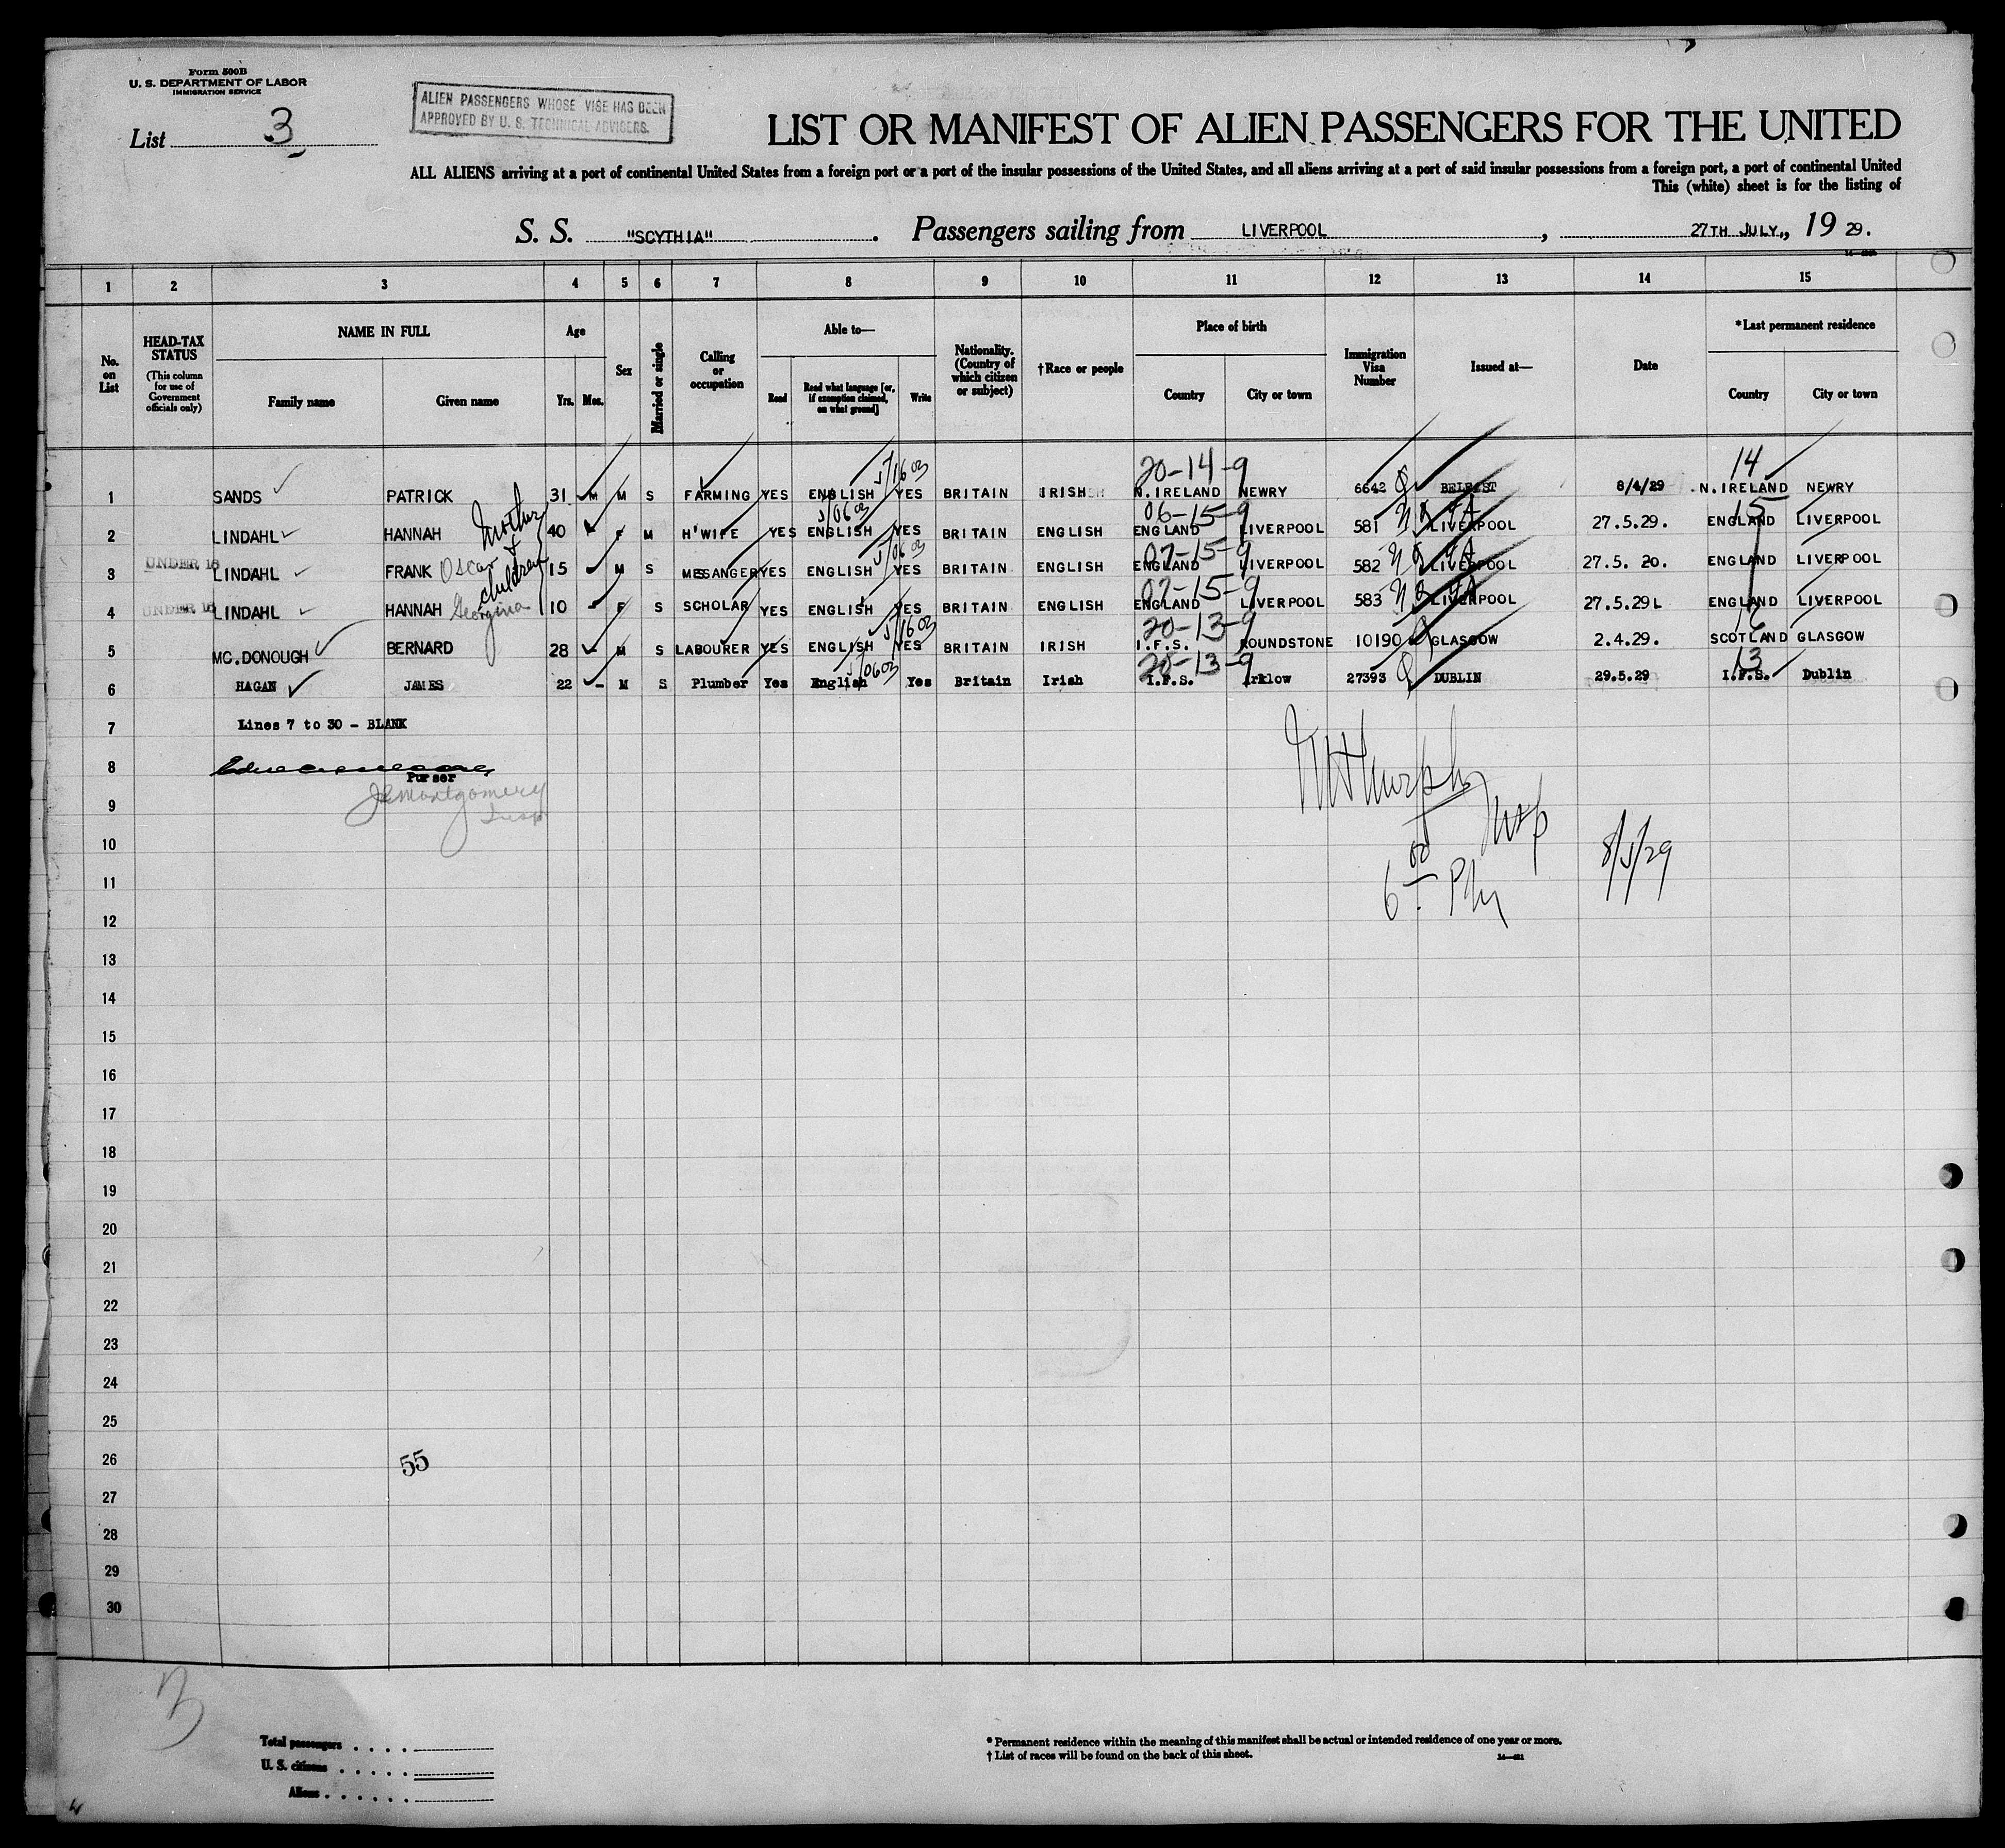 Form 500B
U. S. DEPARTMENT OF LABOR
IMMIGRATION SERVICE
List 3
ALIEN PASSENGERS WHOSE VISE HAS BEEN
APPROVED BY U. S. TECHNICAL ADVISERS.
LIST OR MANIFEST OF ALIEN PASSENGERS FOR THE UNITED
ALL ALIENS arriving at a port of continental United States from a foreign port or a port of the insular possessions of the United States, and all aliens arriving at a port of said insular possessions from a foreign port, a port of continental United
This (white) sheet is for the listing of
S. S. "SCYTHIA" . Passengers sailing from LIVERPOOL , 27TH JULY,, 19 29.
1 2 3 4 5 6 7 8 9 10 11 12 13 14 15
No. on List
HEAD-TAX STATUS (This column for use of Government officials only)
NAME IN FULL Family name Given name
Age Yrs. Mos.
Sex
Married or single
Calling or occupation
Able to— Read Read what language [or, if exemption claimed, on what ground] Write
Nationality. (Country of which citizen or subject)
†Race or people
Place of birth Country City or town
Immigration Visa Number
Issued at—
Date
*Last permanent residence Country City or town
20-14-9 14
1 SANDS PATRICK 31 M M S FARMING YES ENGLISH YES BRITAIN IRISH N. IRELAND NEWRY 6642 BELFAST 8/4/29 N. IRELAND NEWRY
Mother + children
06-15-9 15
2 LINDAHL HANNAH 40 F M H'WIFE YES ENGLISH YES BRITAIN ENGLISH ENGLAND LIVERPOOL 581 LIVERPOOL 27.5.29. ENGLAND LIVERPOOL
07-15-9
3 UNDER 16 LINDAHL FRANK Oscar 15 M S MESSANGER YES ENGLISH YES BRITAIN ENGLISH ENGLAND LIVERPOOL 582 LIVERPOOL 27.5. 20. ENGLAND LIVERPOOL
07-15-9
4 UNDER 16 LINDAHL HANNAH Georgina 10 - F S SCHOLAR YES ENGLISH YES BRITAIN ENGLISH ENGLAND LIVERPOOL 583 LIVERPOOL 27.5.29L ENGLAND LIVERPOOL
20-13-9
5 MC.DONOUGH BERNARD 28 - M S LABOURER YES ENGLISH YES BRITAIN IRISH I.F.S. ROUNDSTONE 10190 GLASGOW 2.4.29. SCOTLAND GLASGOW
20-13-9 13
6 HAGAN JAMES 22 - M S Plumber Yes English Yes Britain Irish I.F.S. Arklow 27393 DUBLIN 29.5.29 I.F.S. Dublin
7 Lines 7 to 30 - BLANK
8
Purser
9 Montgomery
10
11
8/5/29
12
13
14
15
16
17
18
19
20
21
22
23
24
25
26 55
27
28
29
30
3
Total passengers . . . .
U. S. citizens . . . . .
Aliens . . . . . .
* Permanent residence within the meaning of this manifest shall be actual or intended residence of one year or more.
† List of races will be found on the back of this sheet.